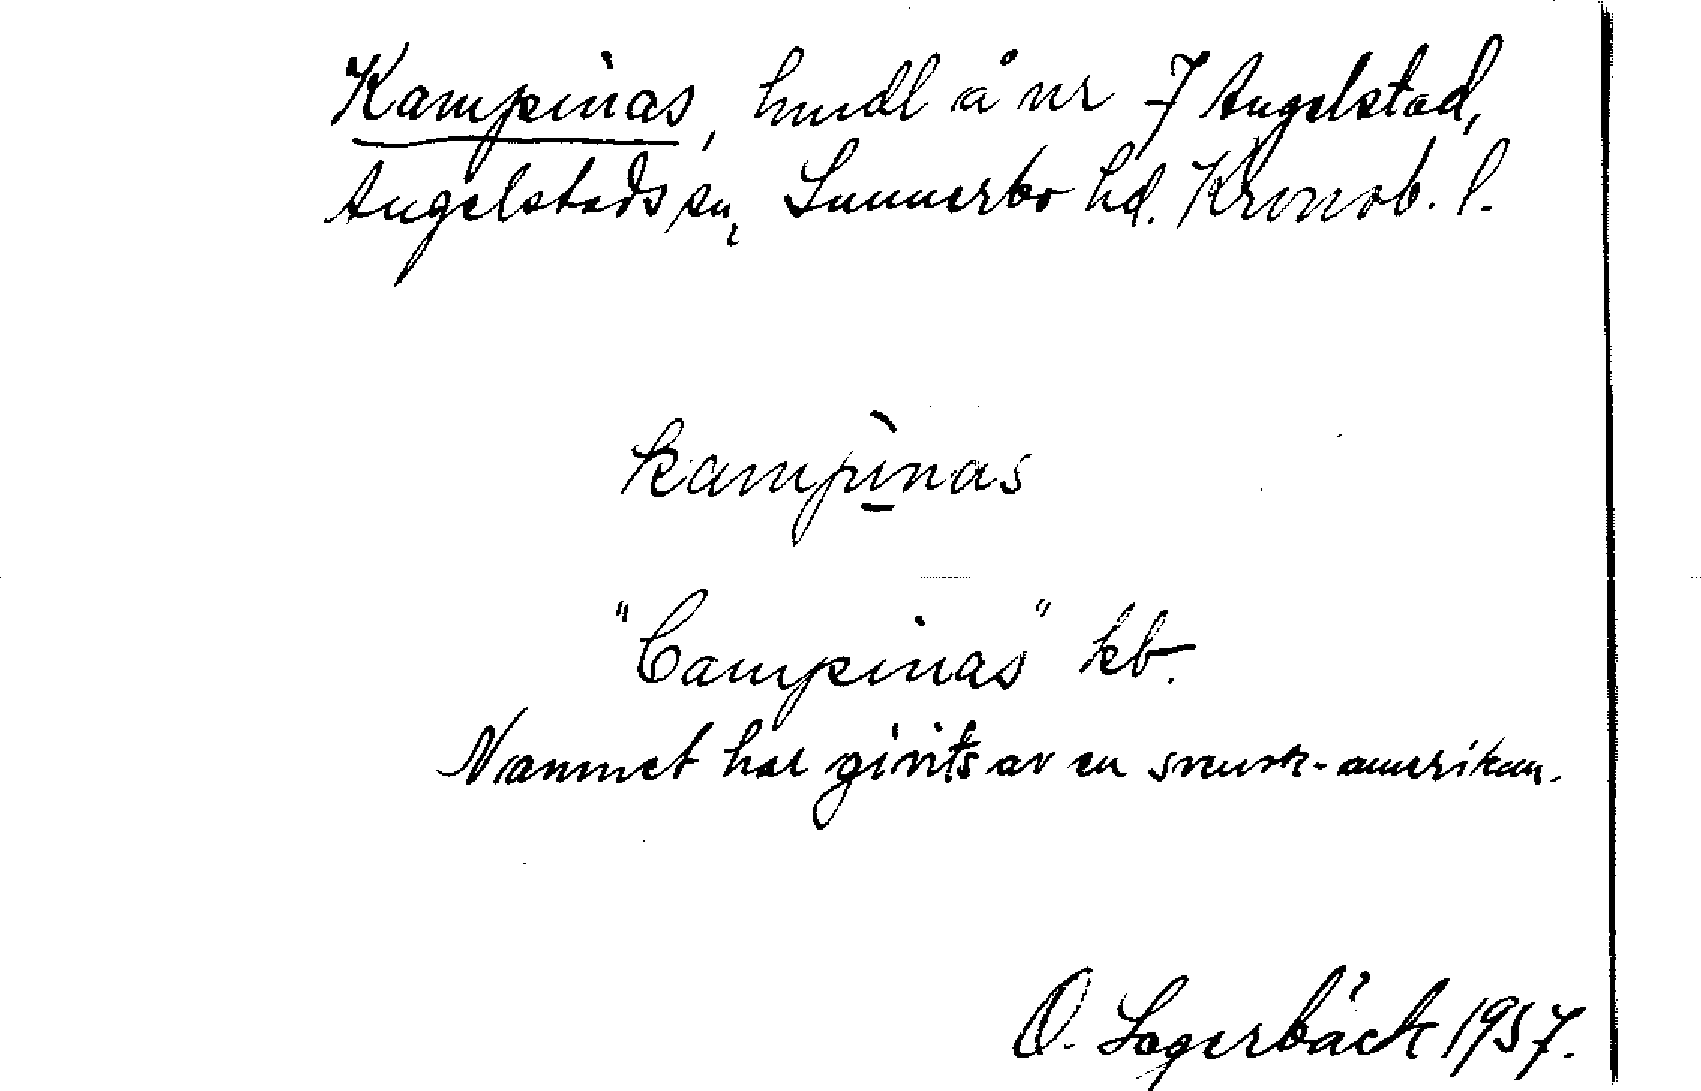 Kampinas, hmdl å nr 7 Angelstad,
Angelstads sn, Sunnerbo hd. Kronob. l.
kampìnas
"Campinas" kb.
Namnet har givits av en svensk-amerikan.
O. Lagerbäck 1957.